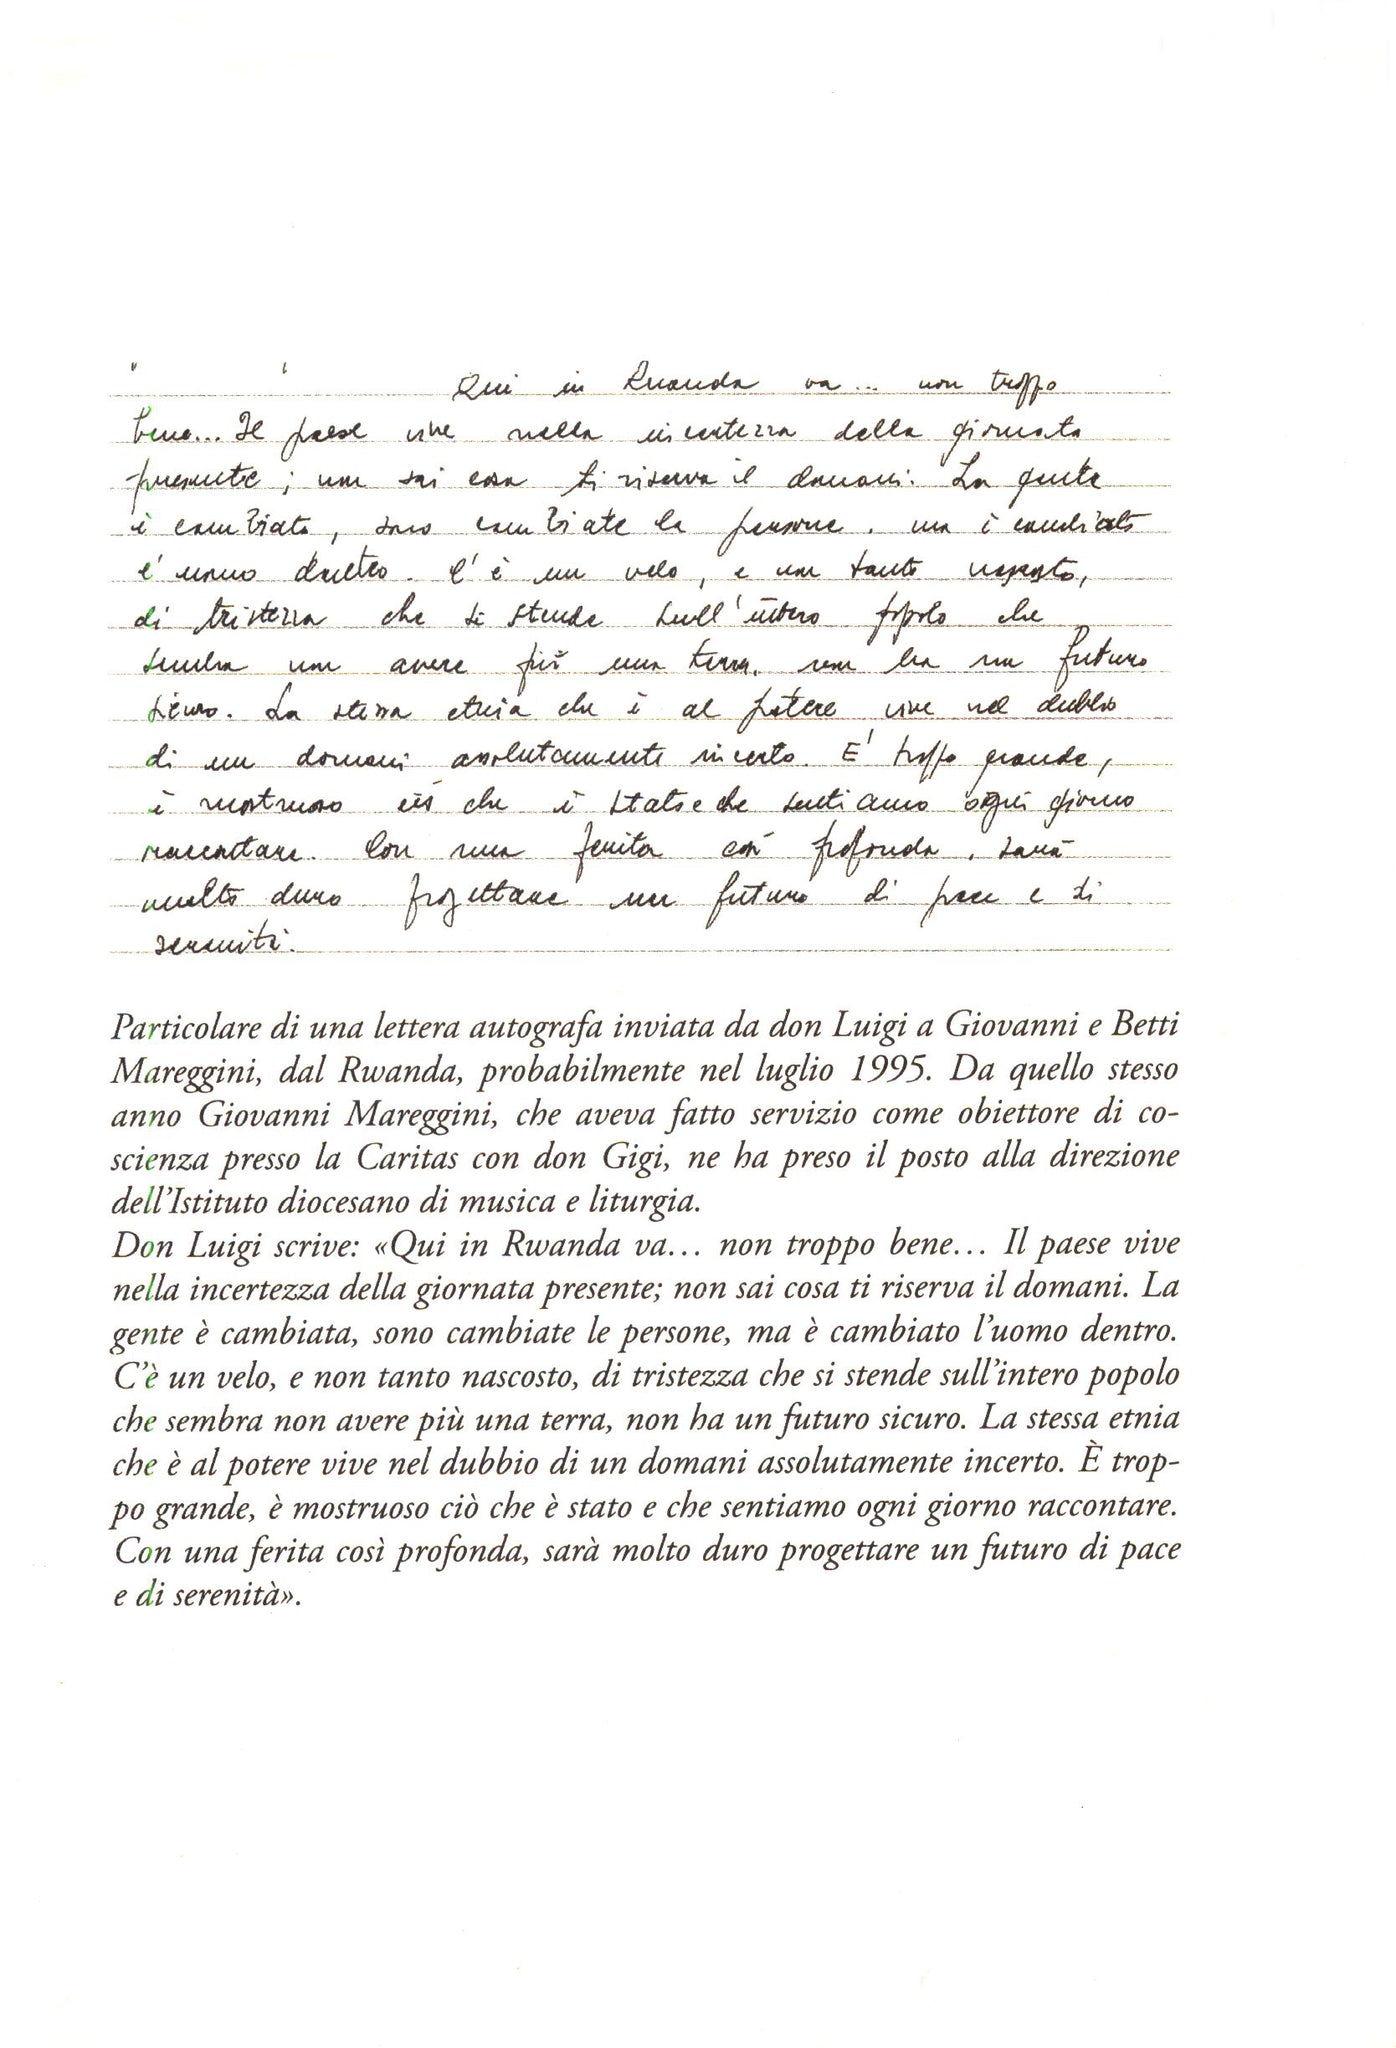 Qui in Ruanda va... non troppo
bene... Il paese vive nella incertezza della giornata
presente; non sai cosa ti riserva il domani. La gente
è cambiata, sono cambiate le persone, ma è cambiato
l'uomo dentro. C'è un velo, e non tanto nascosto,
di tristezza che si stende sull'intero popolo che
sembra non avere più una terra, non ha un futuro
sicuro. La stessa etnia che è al potere vive nel dubbio
di un domani assolutamente incerto. E' troppo grande,
è mostruoso ciò che è stato e che sentiamo ogni giorno
raccontare. Con una ferita così profonda, sarà
molto duro progettare un futuro di pace e di
serenità.
Particolare di una lettera autografa inviata da don Luigi a Giovanni e Betti
Mareggini, dal Rwanda, probabilmente nel luglio 1995. Da quello stesso
anno Giovanni Mareggini, che aveva fatto servizio come obiettore di co-
scienza presso la Caritas con don Gigi, ne ha preso il posto alla direzione
dell'Istituto diocesano di musica e liturgia.
Don Luigi scrive: «Qui in Rwanda va… non troppo bene… Il paese vive
nella incertezza della giornata presente; non sai cosa ti riserva il domani. La
gente è cambiata, sono cambiate le persone, ma è cambiato l'uomo dentro.
C'è un velo, e non tanto nascosto, di tristezza che si stende sull'intero popolo
che sembra non avere più una terra, non ha un futuro sicuro. La stessa etnia
che è al potere vive nel dubbio di un domani assolutamente incerto. È trop-
po grande, è mostruoso ciò che è stato e che sentiamo ogni giorno raccontare.
Con una ferita così profonda, sarà molto duro progettare un futuro di pace
e di serenità».